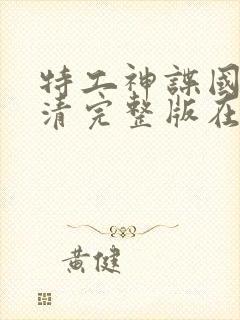 特工神諜國
清完整版在
黃健